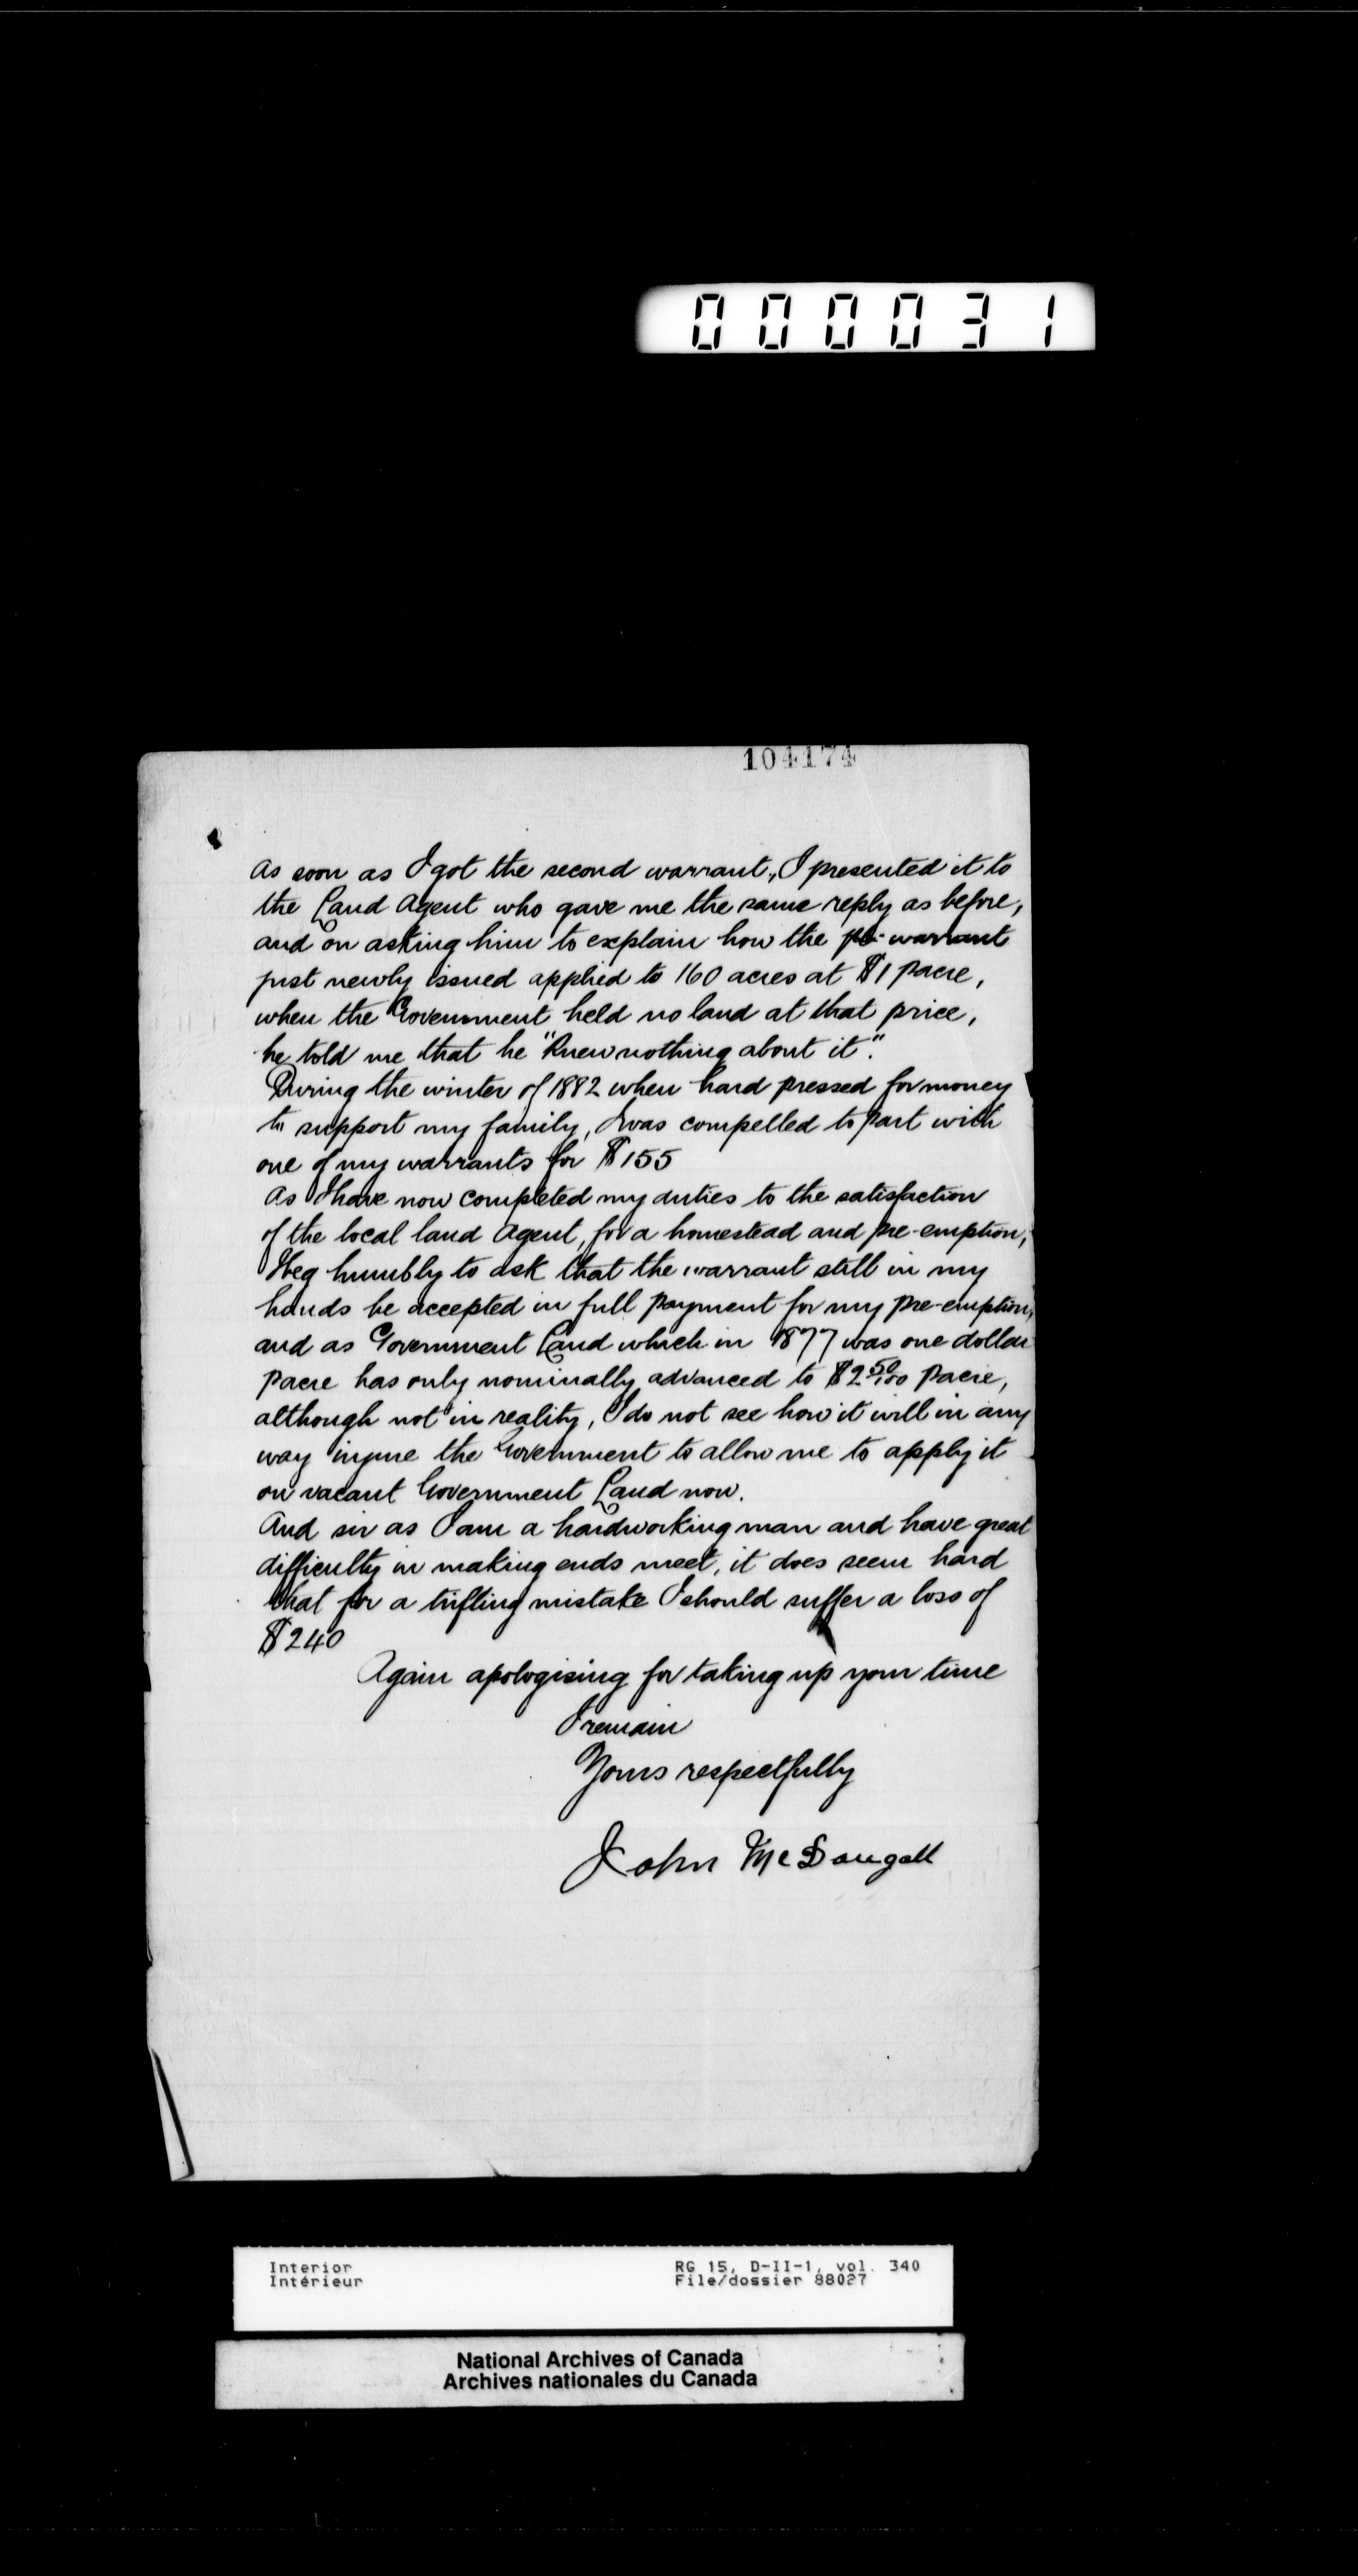 000031
104174
As soon as I got the second warrant, I presented it to
the Land Agent who gave me the same reply as before,
and on asking him to explain how the warrant
just newly issued applied to 160 acres at $1 pacre,
when the Government held no land at that price,
he told me that he "knew nothing about it".
During the winter of 1882 when hard pressed for money
to support my family, I was compelled to part with
one of my warrants for $155
As I have now completed my duties to the satisfaction
of the local land Agent, for a homestead and pre-emption,
I beg humbly to ask that the warrant still in my
hands be accepted in full payment for my pre-emption,
and as Government Land which in 1877 was one dollar
pacre has only nominally advanced to $2 50/100 pacre,
although not in reality, I do not see how it will in any
way injure the Government to allow me to apply it
on vacant Government Land now.
And sir as I am a hardworking man and have great
difficulty in making ends meet, it does seem hard
that for a trifling mistake I should suffer a loss of
$240
Again apologising for taking up your time
I remain
Yours respectfully
John McDougall
Interior RG 15, D-II-1, vol. 340
Intérieur File/dossier 88027
National Archives of Canada
Archives nationales du Canada